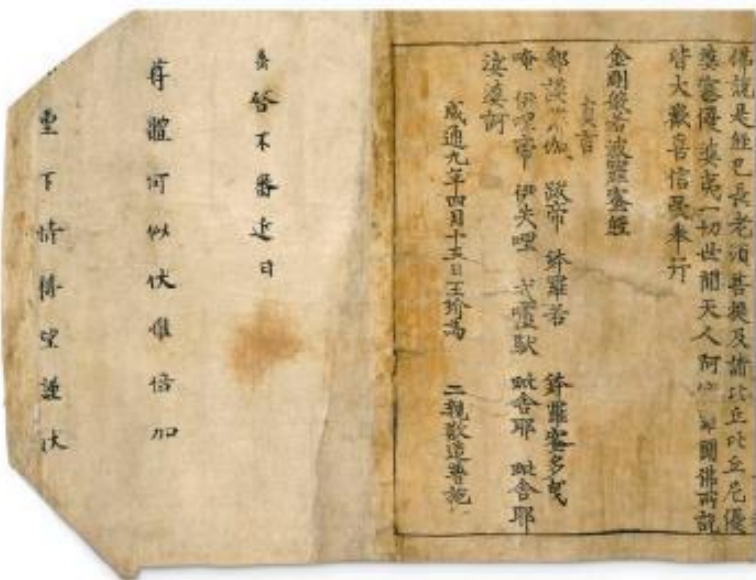 佛說是經已長老須菩提及諸比丘比丘尼優
婆塞優婆夷一切世間天人阿 聞佛所說
皆大歡喜信受奉行
金剛般若波羅蜜經
真言
謨 伽 跋帝 鉢羅若 鉢羅蜜多曳
唵 伊哩帝 伊失哩 戍嚧馱 毗舍耶 毗舍耶
娑婆訶
咸通九年四月十五日王玠為 二親敬造普施
不審近日
尊體何似伏惟倍加
重下情 望謹伏